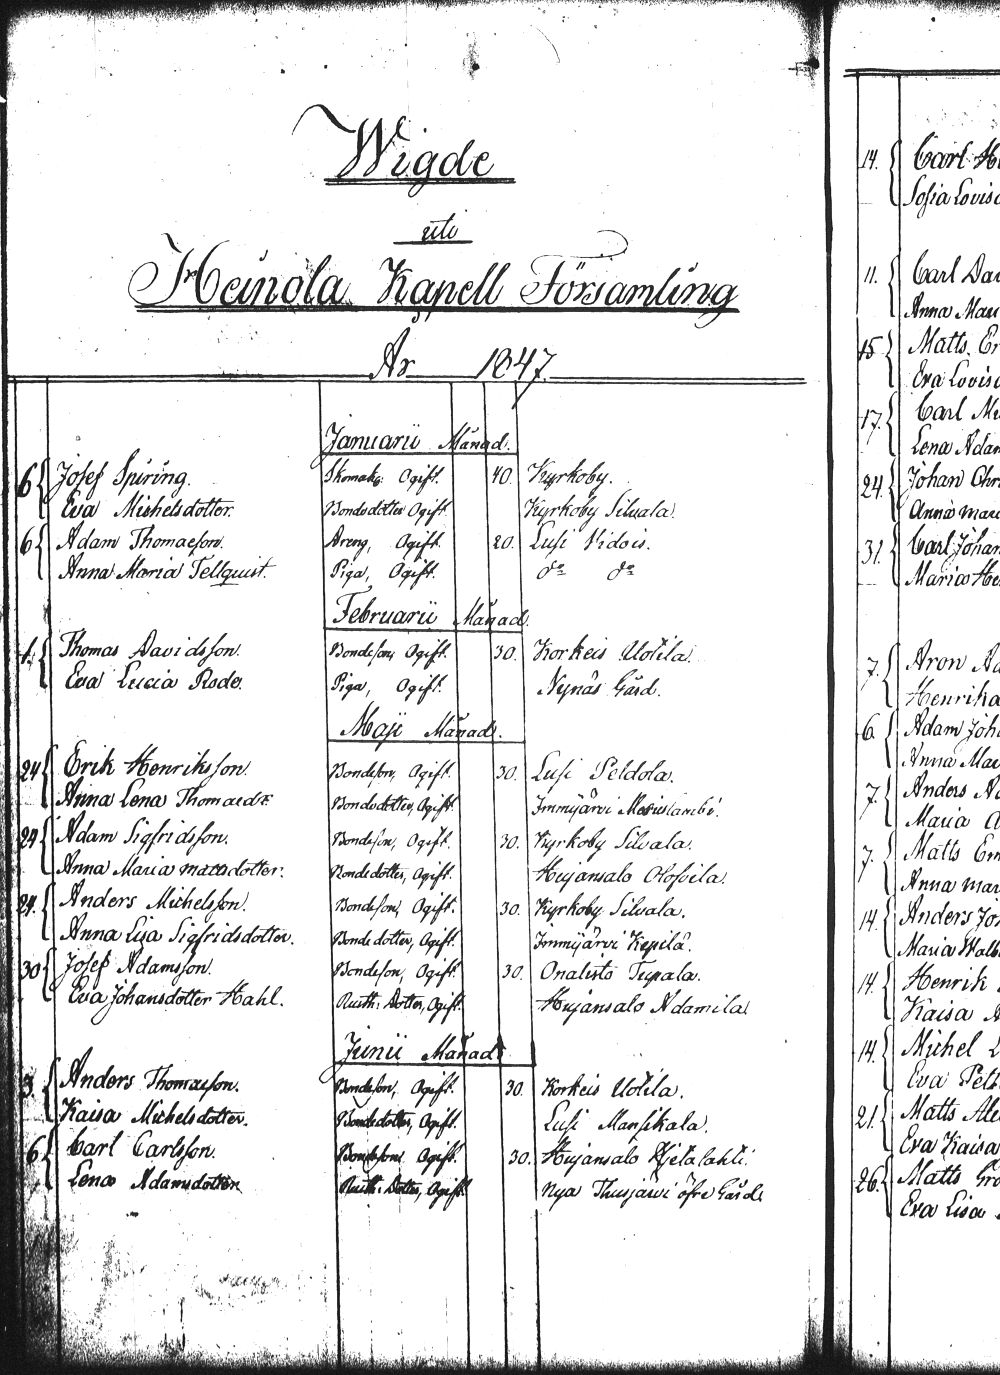 Wigde
uti
Heinola Kapell Församling
År 1847.
Januarii Månad.
6 Josef Spiring. Skomak: Ogift. 40. Kyrkoby.
Eva Michelsdotter. Bondedotter Ogift. Kyrkoby Silvala.
6 Adam Thomaeson. Areng, Ogift. 20. Lusi
Anna Maria Tellquist. Piga, Ogift. do do
Februarii Månad.
1. Thomas Davidsson. Bondeson, Ogift. 30. Korkeis Uotila.
Eva Lucia Rode. Piga, Ogift. Nynäs Gård.
Maji Månad.
24 Erik Henriksson. Bondeson, Ogift. 30. Lusi Peldola.
Anna Lena Bondedotter, Ogift. Immijärvi
24 Adam Sigfridsson. Bondeson, Ogift. 30. Kyrkoby Silvala.
Anna Maria mattsdotter. Bondedotter, Ogift. Heijänsalo Olofvila.
24. Anders Michelsson. Bondeson, Ogift. 30. Kyrkoby Silvala.
Anna Lisa Sigfridsdotter. Bondedotter, Ogift. Immijärvi
30 Josef Adamsson. Bondeson, Ogift. 30. Onalisto Tupala.
Eva Johansdotter Hahl. Rusth: Dotter, Ogift. Heijänsalo Adamila
Junii Månad
3. Anders Thomaeson. Bondeson, Ogift. 30. Korkeis Uotila.
Kaisa Michelsdotter. Bondedotter, Ogift. Lusi Mansikala.
6 Carl Carlsson. Bondeson, Ogift. 30. Heijänsalo Hietalahti.
Lena Adamsdotter Rusth: Dotter, Ogift. Nya Thusjärvi öfre Gård.
14. Carl
Sofia Lovisa
11. Carl
Anna
15 Matts
Eva Lovisa
17. Carl
Lena
24. Johan
Anna
31. Carl Johan
Maria
7. Aron
Henrika
6. Adam
Anna
7. Anders
Maria
7. Matts
Anna
14. Anders
Maria
14. Henrik
Kaisa
14. Michel
Eva
21. Matts
Eva Kaisa
26. Matts
Eva Lisa